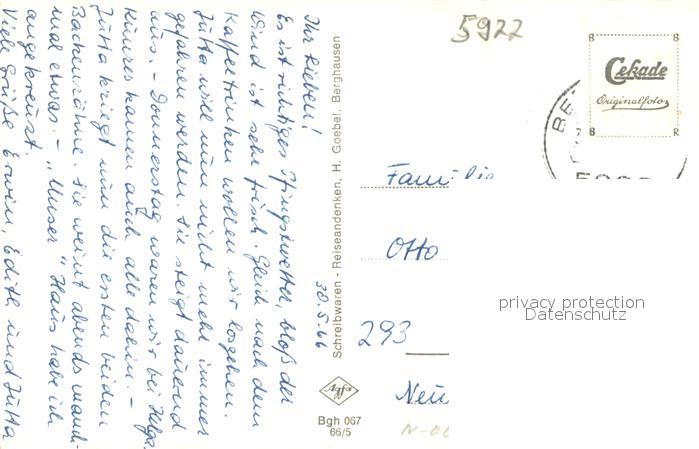 5922
30.5.66
Ihr Lieben!
Es ist richtiges Pfingstwetter, bloß der
Wind ist sehr frisch. Gleich nach dem
Kaffeetrinken wollen wir losgehen.
Jutta will nun nicht mehr immer
gefahren werden. Sie steigt dauernd
aus. - Donnerstag waren wir bei Helga.
kamen auch alle dahin. -
Jutta kriegt nun die ersten beiden
Backenzähne. Sie weint abends manch-
mal etwas. - "Unser" Haus habe ich
angekreuzt.
Viele Grüße Erwin, Edith und Jutta
Schreibwaren - Reiseandenken, H. Goebel, Berghausen
Agfa
Bgh 067
66/5
Cekade
Originalfoto
Familie
Otto
293
Neu
privacy protection
Datenschutz